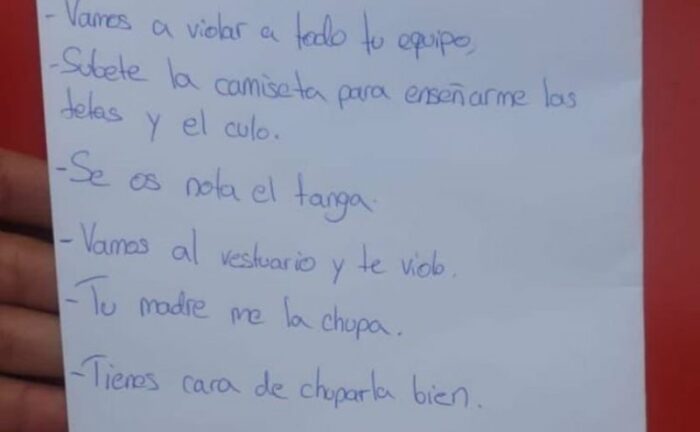 - Vamos a violar a todo tu equipo,
- Subete la camiseta para enseñarme las
tetas y el culo.
- Se os nota el tanga.
- Vamos al vestuario y te violo.
- Tu madre me la chupa.
- Tienes cara de chuparla bien.